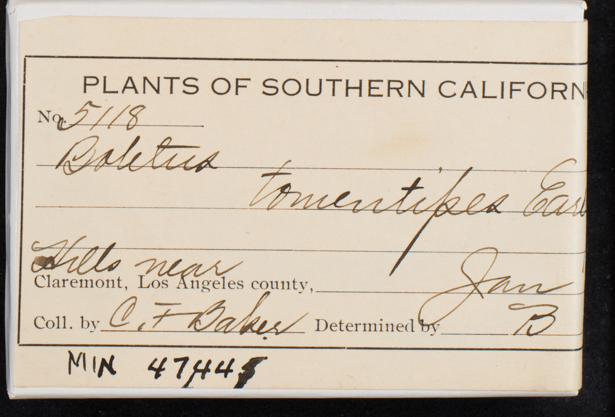 PLANTS OF SOUTHERN CALIFORN
No. 5118
Boletus
tomentipes Earl
Hills near
Claremont, Los Angeles county, Jan
Coll. by C. F Baker Determined by B
MIN 47445